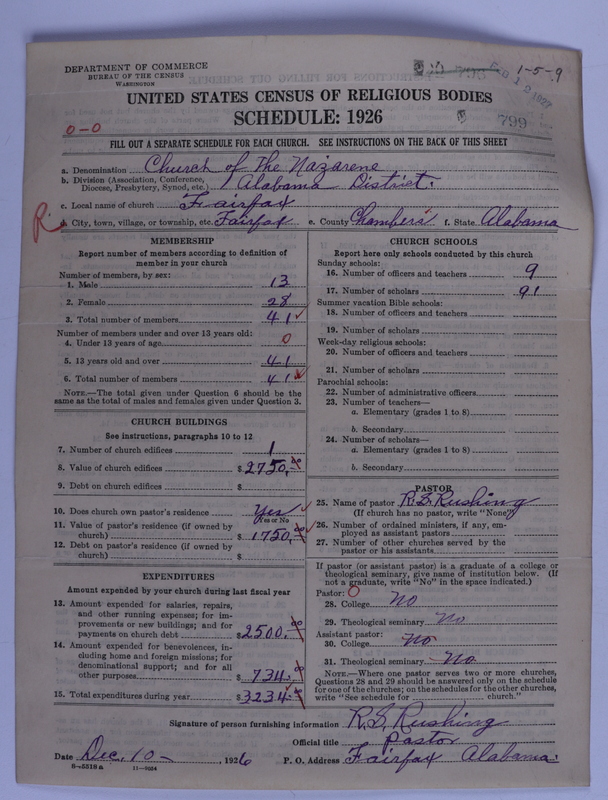 DEPARTMENT OF COMMERCE
BUREAU OF THE CENSUS
WASHINGTON
1-5-9
UNITED STATES CENSUS OF RELIGIOUS BODIES
SCHEDULE: 1926
799
0-0
FILL OUT A SEPARATE SCHEDULE FOR EACH CHURCH. SEE INSTRUCTIONS ON THE BACK OF THIS SHEET
a. Denomination Church of The Nazarene
b. Division (Association, Conference, Diocese, Presbytery, Synod, etc.) Alabama District.
c. Local name of church Fairfax
R.
d. City, town, village, or township, etc. Fairfax e. County Chambers f. State Alabama
MEMBERSHIP
Report number of members according to definition of
member in your church
Number of members, by sex:
1. Male 13
2. Female 28
3. Total number of members 41
Number of members under and over 13 years old:
4. Under 13 years of age 0
5. 13 years old and over 41
6. Total number of members 41
NOTE.—The total given under Question 6 should be
same as the total of males and females given under Question 3.
CHURCH BUILDINGS
See instructions, paragraphs 10 to 12
7. Number of church edifices 1
8. Value of church edifices $2750.00
9. Debt on church edifices $
10. Does church own pastor's residence Yes
Yes or No
11. Value of pastor's residence (if owned by
church) $1750.00
12. Debt on pastor's residence (if owned by
church) $
EXPENDITURES
Amount expended by your church during last fiscal year
13. Amount expended for salaries, repairs,
and other running expenses; for im-
provements or new buildings; and for
payments on church debt $2500.00
14. Amount expended for benevolences, in-
cluding home and foreign missions; for
denominational support; and for all
other purposes $734.00
15. Total expenditures during year $3234.00
CHURCH SCHOOLS
Report here only schools conducted by this church
Sunday schools:
16. Number of officers and teachers 9
17. Number of scholars 91
Summer vacation Bible schools:
18. Number of officers and teachers
19. Number of scholars
Week-day religious schools:
20. Number of officers and teachers
21. Number of scholars
Parochial schools:
22. Number of administrative officers
23. Number of teachers—
a. Elementary (grades 1 to 8)
b. Secondary
24. Number of scholars—
a. Elementary (grades 1 to 8)
b. Secondary
PASTOR
25. Name of pastor R.S. Rushing
(If church has no pastor, write "None")
26. Number of ordained ministers, if any, em-
ployed as assistant pastors
27. Number of other churches served by the
pastor or his assistants
If pastor (or assistant pastor) is a graduate of a college or
theological seminary, give name of institution below. (If
not a graduate, write "No" in the space indicated.)
Pastor: 0
28. College No
29. Theological seminary No
Assistant pastor:
30. College No
31. Theological seminary No
NOTE.—Where one pastor serves two or more churches,
Questions 28 and 29 should be answered only on the schedule
for one of the churches; on the schedules for the other churches,
write "See schedule for church."
Signature of person furnishing information R.S. Rushing
Official title Pastor
Date Dec. 10 - , 1926 P. O. Address Fairfax Alabama.
8—5518 a 11—9034